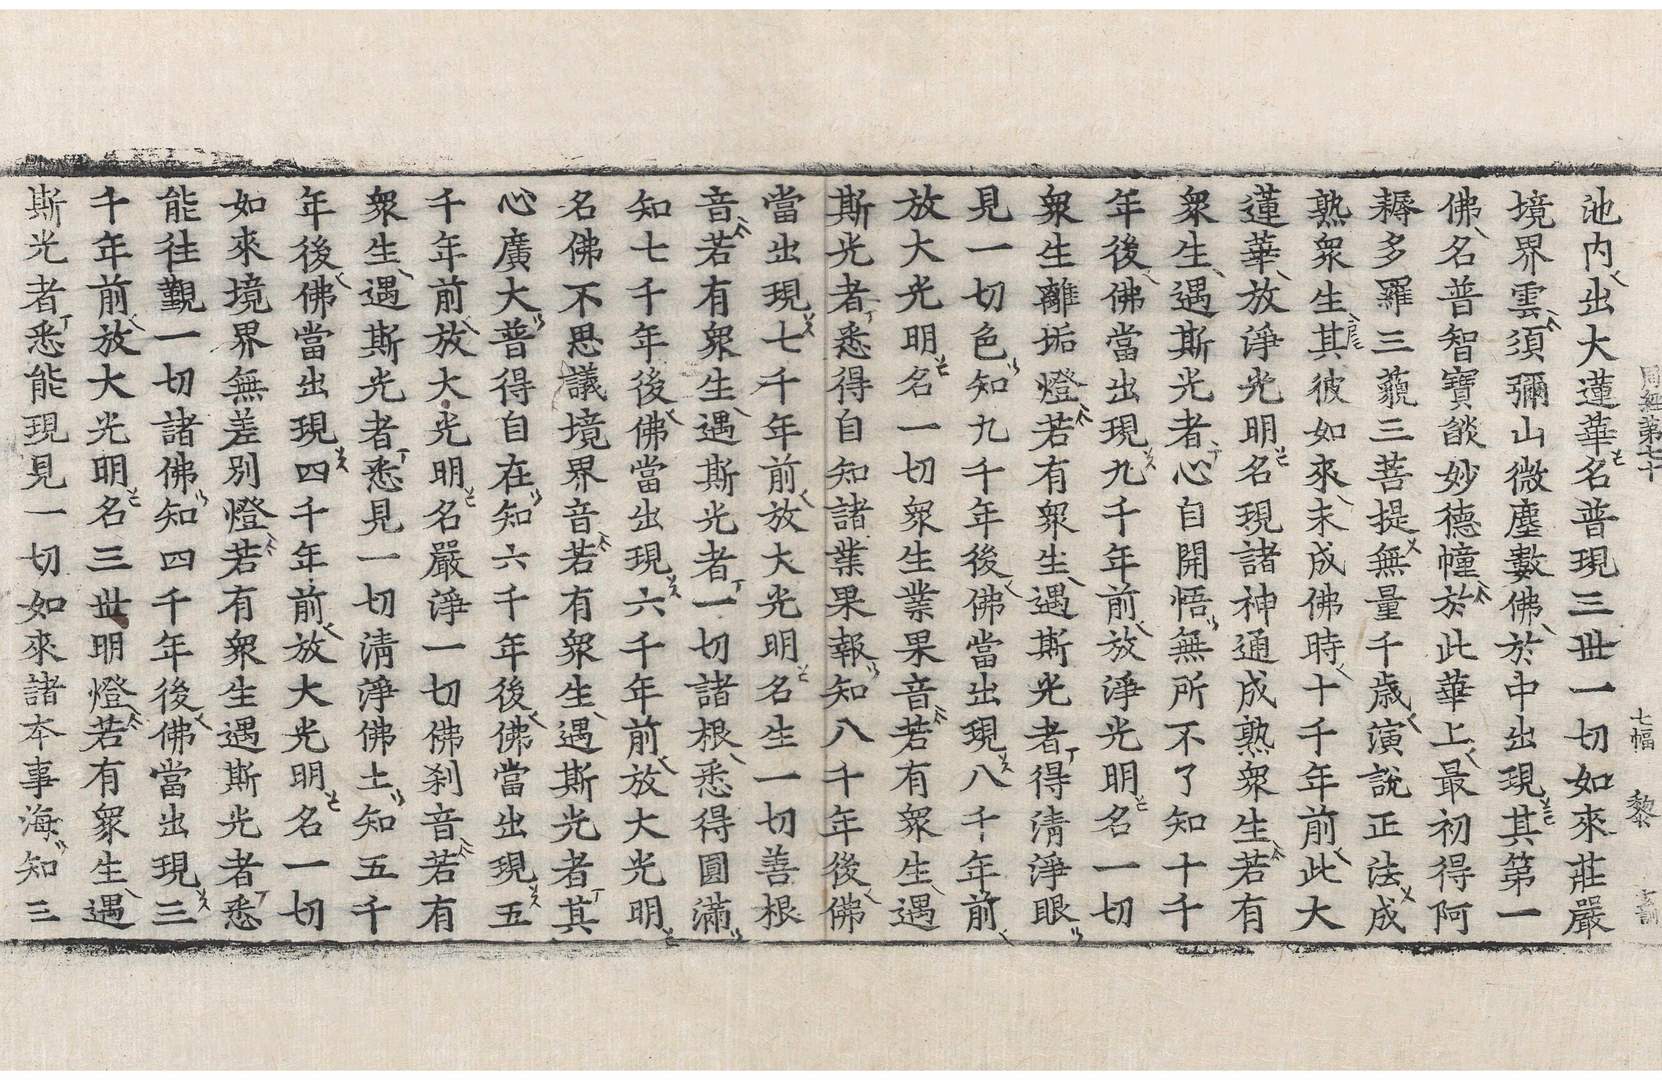 周經第七十 七幅 黎
池內出大蓮華名普現三世一切如來莊嚴
境界雲須彌山微塵數佛於中出現其第一
佛名普智寶燄妙德幢於此華上最初得阿
耨多羅三藐三菩提無量千歲演說正法成
熟衆生其彼如來未成佛時十千年前此大
蓮華放淨光明名現諸神通成熟衆生若有
衆生遇斯光者心自開悟無所不了知十千
年後佛當出現九千年前放淨光明名一切
衆生離垢燈若有衆生遇斯光者得清淨眼
見一切色知九千年後佛當出現八千年前
放大光明名一切衆生業果音若有衆生遇
斯光者悉得自知諸業果報知八千年後佛
當出現七千年前放大光明名生一切善根
音若有衆生遇斯光者一切諸根悉得圓滿
知七千年後佛當出現六千年前放大光明
名佛不思議境界音若有衆生遇斯光者其
心廣大普得自在知六千年後佛當出現五
千年前放大光明名嚴淨一切佛刹音若有
衆生遇斯光者悉見一切清淨佛土知五千
年後佛當出現四千年前放大光明名一切
如來境界無差別燈若有衆生遇斯光者悉
能往覲一切諸佛知四千年後佛當出現三
千年前放大光明名三世明燈若有衆生遇
斯光者悉能現見一切如來諸本事海知三